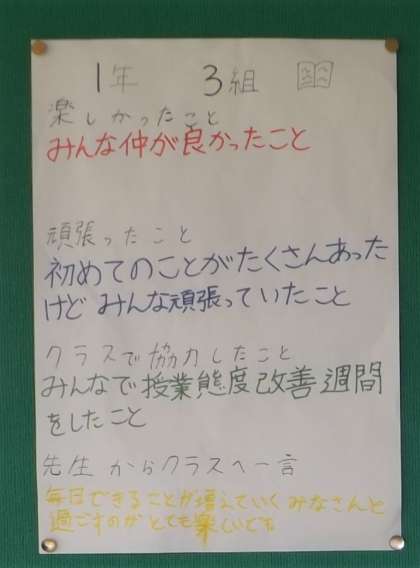 1年 3組
楽しかったこと
みんな仲が良かったこと
頑張ったこと
初めてのことがたくさんあった
けど みんな頑張っていたこと
クラスで協力したこと
みんなで授業態度改善週間
をしたこと
先生からクラスへ一言
毎日できることが増えていくみなさんと
過ごすのがとても楽しいです